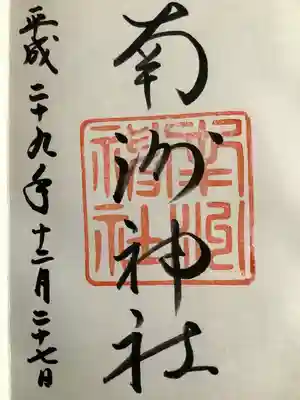 南洲神社
平成二十九年十二月二十七日
南洲
神社